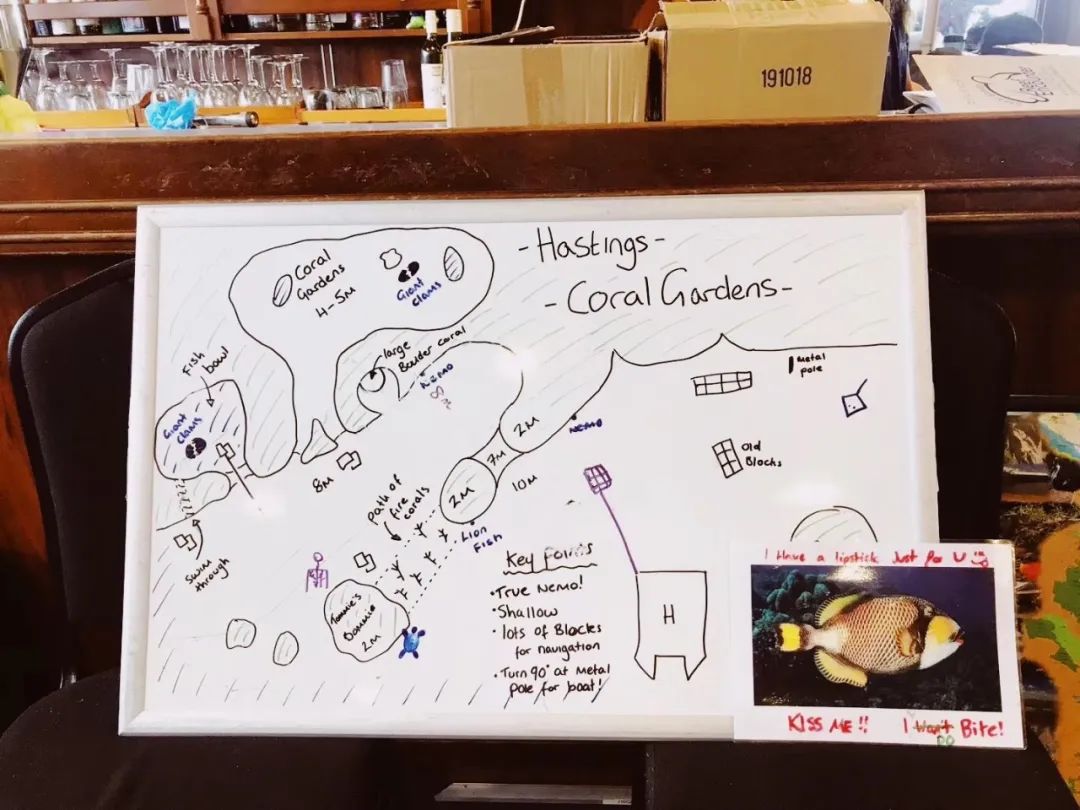 191018
- Hastings -
- Coral Gardens -
Coral
Gardens
4-5M
Giant
clams
Fish
bowl
Giant
clams
large
Boulder coral
NEMO
Metal
pole
2M
NEMO
7M
2M
10M
8M
Old
Blocks
path of
fire corals
Lion
Fish
Swim
through
Tommie's
Bommie
2M
Key Points
• True Nemo!
• Shallow
• lots of Blocks
for navigation
• Turn 90° at Metal
pole for boat!
H
I Have a lipstick Just for U
KISS ME!! I Won't Bite!
DO